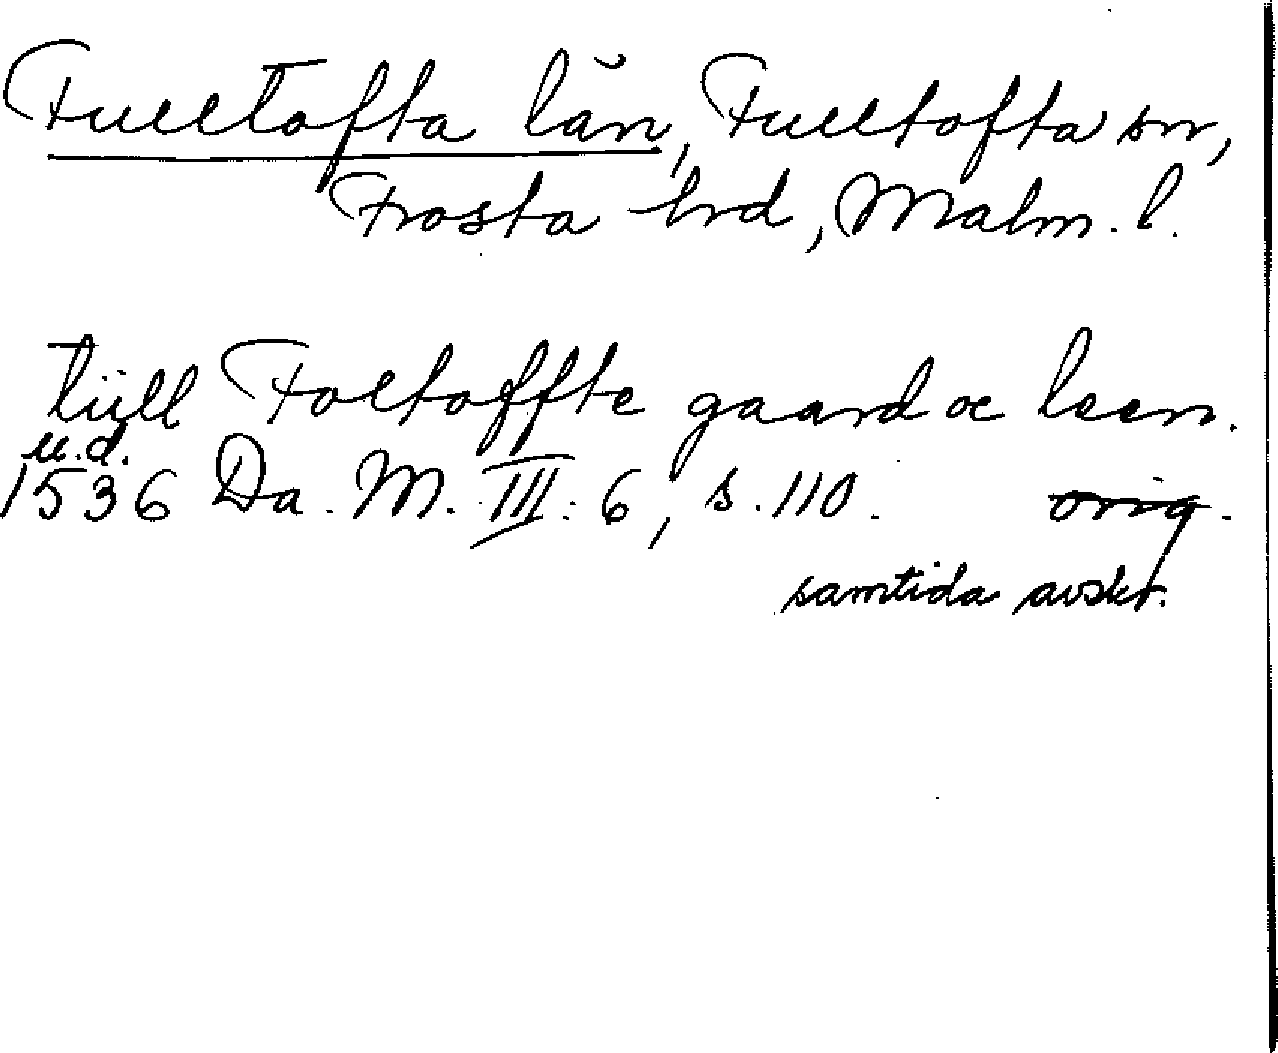 Fulltofta län, Fulltofta sn,
Frosta hrd, Malm. l.
tüll Foltoffte gaard oc leen.
u.d.
1536 Da. M. III: 6, s. 110. orig.
samtida avskr.